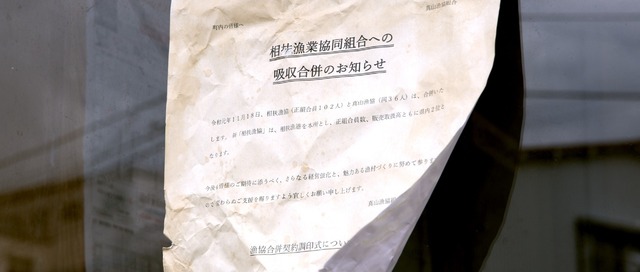 町内の皆様へ
真山漁協組合
漁業協同組合への
吸収合併のお知らせ
令和元年11月18日、相杜漁協(正組合員102人)と真山漁協(同36人)は、合併いた
します。新「相杜漁協」は、相杜漁港を本所とし、正組合員数、販売取扱高ともに県内2位と
なります。
今後も皆様のご期待に添うべく、さらなる経営強化と、魅力ある漁村づくりに努めて参りま
かわらぬご支援を賜りますよう宜しくお願い申し上げます。
真山漁協
漁協合併契約調印式につい